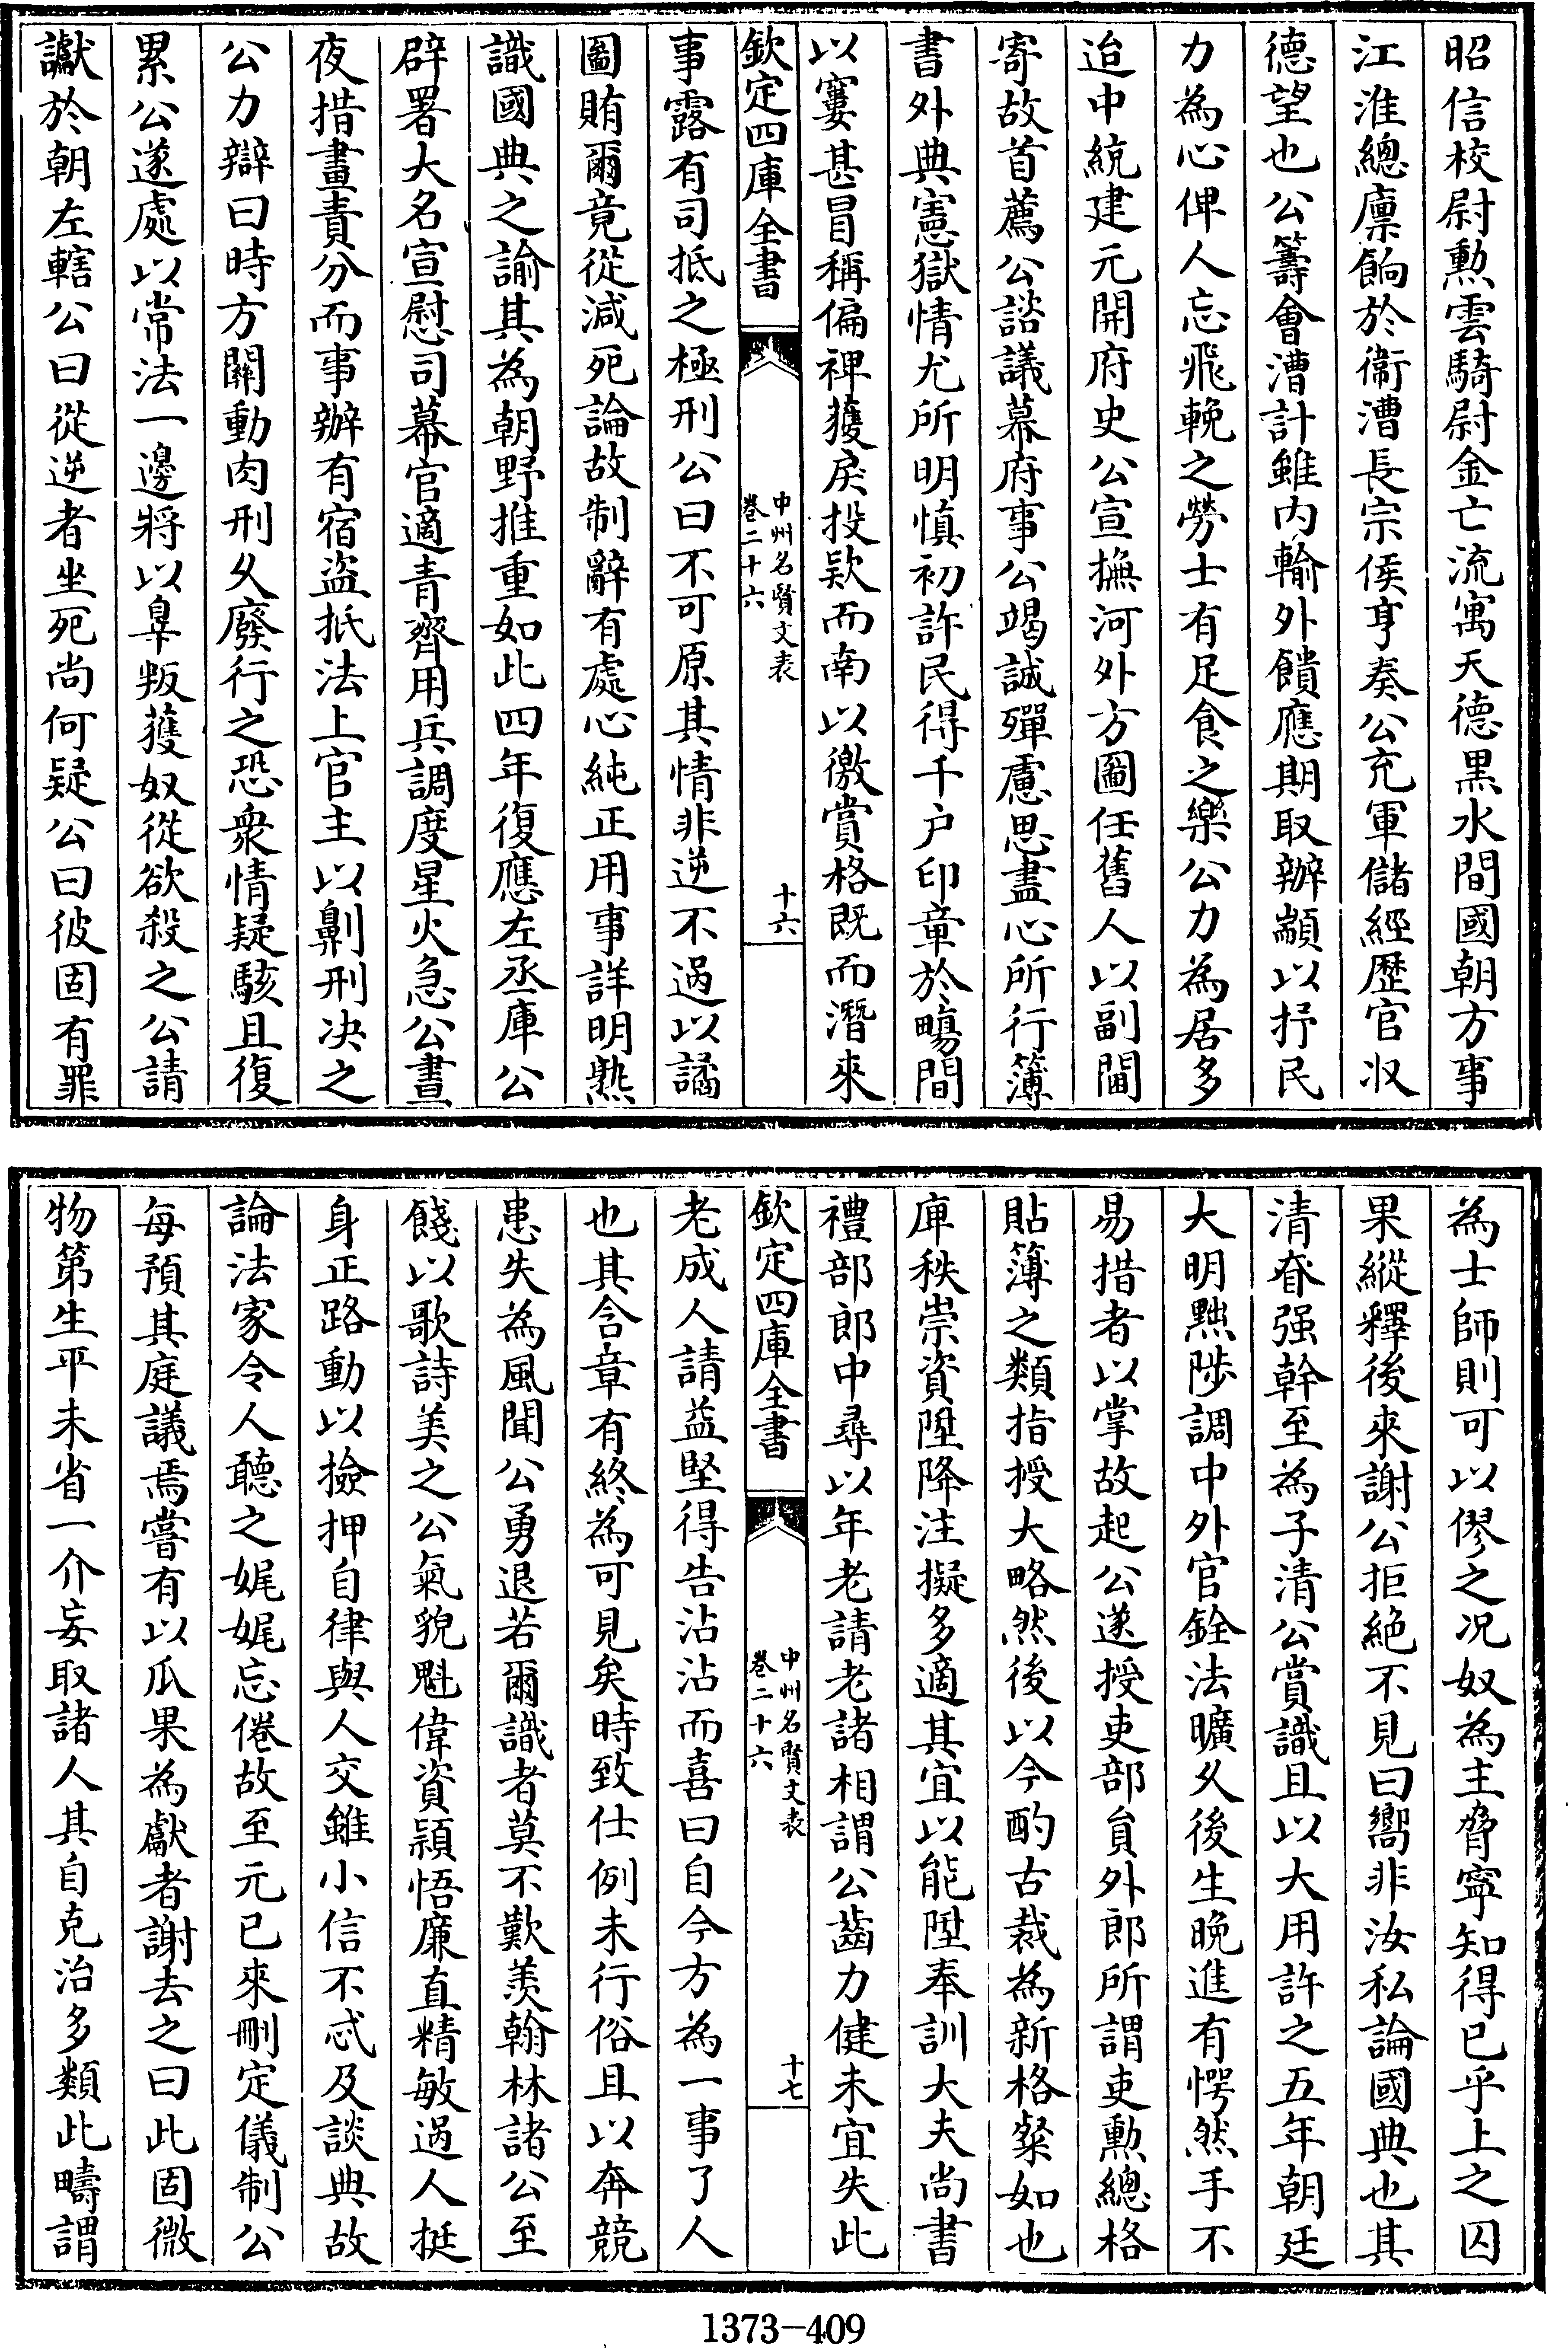 昭信校尉勲雲騎尉金亡流寓天德黒水間國朝方事
江淮總廪餉於衞漕長宗侯亨奏公充軍儲經歴官収
德望也公籌會漕計雖内輸外饋應期取辦顓以抒民
力為心俾人忘飛輓之勞士有足食之樂公力為居多
迨中統建元開府史公宣撫河外方圖任舊人以副閫
寄故首薦公諮議幕府事公竭誠殫慮思盡心所行簿
書外典憲獄情尤所明慎初許民得千户印章於暘間
以寠甚冒稱偏裨蒦戾投欵而南以徼賞格既而潛來
欽定四庫全書
中州名賢文表
卷二十六
十六
事露有司抵之極刑公曰不可原其情非逆不過以譎
圖賄爾竟從減死論故制辭有處心純正用事詳明熟
識國典之諭其為朝野推重如此四年復應左丞庫公
辟署大名宣慰司幕官適青齊用兵調度星火急公晝
夜措畫責分而事辦有宿盜抵法上官主以劓刑决之
公力辯曰時方關動肉刑乆廢行之恐衆情疑駭且復
累公遂處以常法一邊將以辠叛獲奴從欲殺之公請
讞於朝左轄公曰從逆者坐死尚何疑公曰彼固有罪
為士師則可以僇之况奴為主脅寧知得已乎上之囚
果縱釋後來謝公拒絶不見曰嚮非汝私論國典也其
清眘强幹至為子清公賞識且以大用許之五年朝廷
大明黜陟調中外官銓法曠乆後生晚進有愕然手不
易措者以掌故起公遂授吏部員外郎所謂吏勲總格
貼簿之類指授大略然後以今酌古裁為新格粲如也
庫秩崇資陞降注擬多適其宜以能陞奉訓大夫尚書
禮部郎中尋以年老請老諸相謂公齒力健未宜失此
欽定四庫全書
中州名賢文表
卷二十六
十七
老成人請益堅得告沾沾而喜曰自今方為一事了人
也其含章有終為可見矣時致仕例未行俗且以奔競
患失為風聞公勇退若爾識者莫不歎羡翰林諸公至
餞以歌詩美之公氣貌魁偉資穎悟廉直精敏過人挺
身正路動以撿押自律與人交雖小信不忒及談典故
論法家令人聽之娓娓忘倦故至元已來刪定儀制公
每預其庭議焉嘗有以瓜果為獻者謝去之曰此固微
物第生平未省一介妄取諸人其自克治多類此疇謂
1373-409